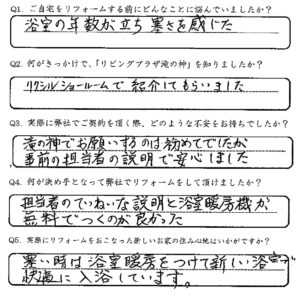 Q1. ご自宅をリフォームする前にどんなことに悩んでいましたか？
浴室の年数が立ち寒さを感じた
Q2. 何がきっかけで、「リビングプラザ滝の神」を知りましたか？
リクシルショールームで紹介してもらいました
Q3. 実際に弊社でご契約を頂く際、どのような不安をお持ちでしたか？
滝の神でお願いするのは初めてでしたが
事前の担当者の説明で安心しました
Q4. 何が決め手となって弊社でリフォームをして頂けましたか？
担当者のていねいな説明と浴室暖房機が
無料でつくのが良かった
Q5. 実際にリフォームをおこなった新しいお家の住み心地はいかがですか？
寒い時は浴室暖房をつけて新しい浴室で
快適に入浴しています。